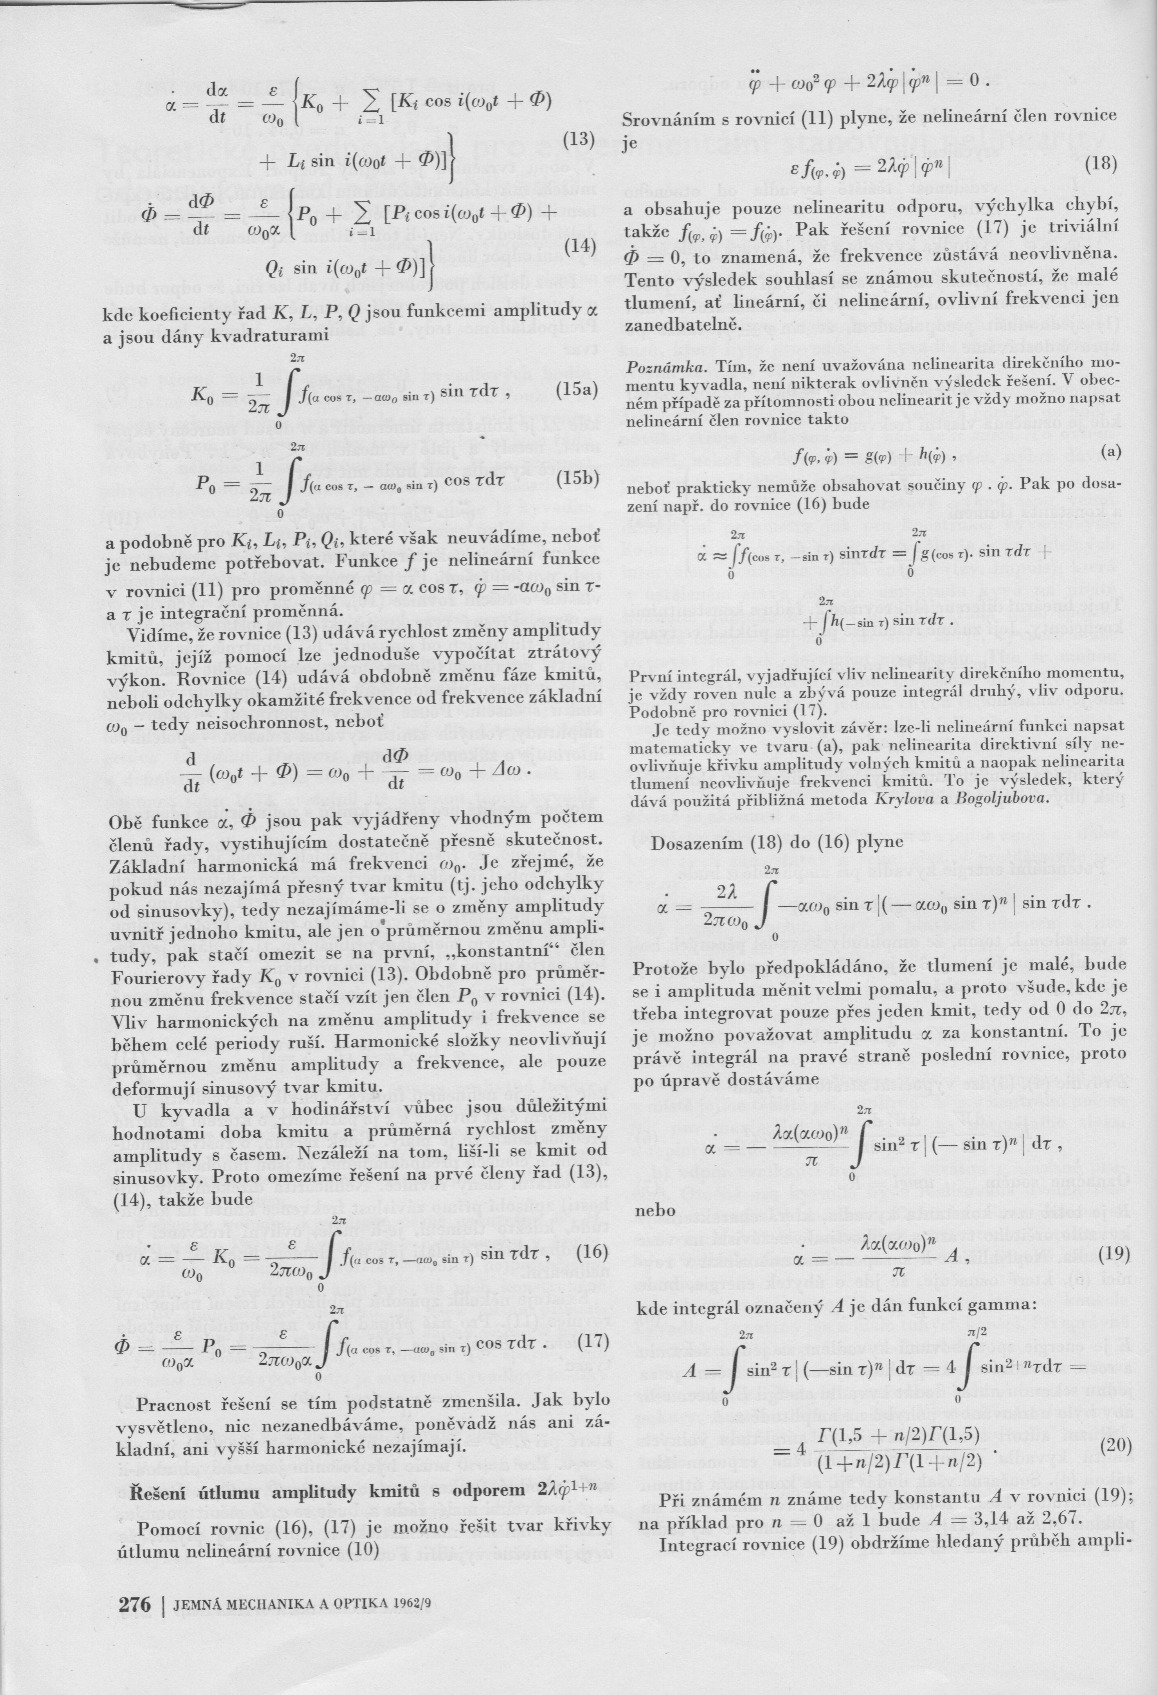 α̇ = dα/dt = ε/ω₀ {K₀ + Σ_{i=1} [Kᵢ cos i(ω₀t + Φ)
+ Lᵢ sin i(ω₀t + Φ)]} (13)
Φ̇ = dΦ/dt = ε/ω₀α {P₀ + Σ_{i=1} [Pᵢ cos i(ω₀t + Φ) +
Qᵢ sin i(ω₀t + Φ)]} (14)
kde koeficienty řad K, L, P, Q jsou funkcemi amplitudy α
a jsou dány kvadraturami
K₀ = 1/2π ∫₀^{2π} f(α cos τ, —αω₀ sin τ) sin τdτ , (15a)
P₀ = 1/2π ∫₀^{2π} f(α cos τ, — αω₀ sin τ) cos τdτ (15b)
a podobně pro Kᵢ, Lᵢ, Pᵢ, Qᵢ, které však neuvádíme, neboť
je nebudeme potřebovat. Funkce f je nelineární funkce
v rovnici (11) pro proměnné φ = α cos τ, φ̇ = -αω₀ sin τ-
a τ je integrační proměnná.
Vidíme, že rovnice (13) udává rychlost změny amplitudy
kmitů, jejíž pomocí lze jednoduše vypočítat ztrátový
výkon. Rovnice (14) udává obdobně změnu fáze kmitů,
neboli odchylky okamžité frekvence od frekvence základní
ω₀ – tedy neisochronnost, neboť
d/dt (ω₀t + Φ) = ω₀ + dΦ/dt = ω₀ + Δω .
Obě funkce α̇, Φ̇ jsou pak vyjádřeny vhodným počtem
členů řady, vystihujícím dostatečně přesně skutečnost.
Základní harmonická má frekvenci ω₀. Je zřejmé, že
pokud nás nezajímá přesný tvar kmitu (tj. jeho odchylky
od sinusovky), tedy nezajímáme-li se o změny amplitudy
uvnitř jednoho kmitu, ale jen o průměrnou změnu ampli-
tudy, pak stačí omezit se na první, „konstantní“ člen
Fourierovy řady K₀ v rovnici (13). Obdobně pro průměr-
nou změnu frekvence stačí vzít jen člen P₀ v rovnici (14).
Vliv harmonických na změnu amplitudy i frekvence se
během celé periody ruší. Harmonické složky neovlivňují
průměrnou změnu amplitudy a frekvence, ale pouze
deformují sinusový tvar kmitu.
U kyvadla a v hodinářství vůbec jsou důležitými
hodnotami doba kmitu a průměrná rychlost změny
amplitudy s časem. Nezáleží na tom, liší-li se kmit od
sinusovky. Proto omezíme řešení na prvé členy řad (13),
(14), takže bude
α̇ = ε/ω₀ K₀ = ε/2πω₀ ∫₀^{2π} f(α cos τ, —αω₀ sin τ) sin τdτ , (16)
Φ̇ = ε/ω₀α P₀ = ε/2πω₀α ∫₀^{2π} f(α cos τ, —αω₀ sin τ) cos τdτ . (17)
Pracnost řešení se tím podstatně zmenšila. Jak bylo
vysvětleno, nic nezanedbáváme, poněvadž nás ani zá-
kladní, ani vyšší harmonické nezajímají.
Řešení útlumu amplitudy kmitů s odporem 2λφ̇^{1+n}
Pomocí rovnic (16), (17) je možno řešit tvar křivky
útlumu nelineární rovnice (10)
φ̈ + ω₀² φ + 2λφ̇ | φ̇ⁿ | = 0 .
Srovnáním s rovnicí (11) plyne, že nelineární člen rovnice
je
ε f(φ, φ̇) = 2λφ̇ | φ̇ⁿ | (18)
a obsahuje pouze nelinearitu odporu, výchylka chybí,
takže f(φ, φ̇) = f(φ̇). Pak řešení rovnice (17) je triviální
Φ̇ = 0, to znamená, že frekvence zůstává neovlivněna.
Tento výsledek souhlasí se známou skutečností, že malé
tlumení, ať lineární, či nelineární, ovlivní frekvenci jen
zanedbatelně.
Poznámka. Tím, že není uvažována nelinearita direkčního mo-
mentu kyvadla, není nikterak ovlivněn výsledek řešení. V obec-
ném případě za přítomnosti obou nelinearit je vždy možno napsat
nelineární člen rovnice takto
f(φ, φ̇) = g(φ) + h(φ̇) , (a)
neboť prakticky nemůže obsahovat součiny φ . φ̇. Pak po dosa-
zení např. do rovnice (16) bude
α̇ ≈ ∫₀^{2π} f(cos τ, —sin τ) sinτdτ = ∫₀^{2π} g(cos τ). sin τdτ +
+ ∫₀^{2π} h(—sin τ) sin τdτ .
První integrál, vyjadřující vliv nelinearity direkčního momentu,
je vždy roven nule a zbývá pouze integrál druhý, vliv odporu.
Podobně pro rovnici (17).
Je tedy možno vyslovit závěr: lze-li nelineární funkci napsat
matematicky ve tvaru (a), pak nelinearita direktivní síly ne-
ovlivňuje křivku amplitudy volných kmitů a naopak nelinearita
tlumení neovlivňuje frekvenci kmitů. To je výsledek, který
dává použitá přibližná metoda Krylova a Bogoljubova.
Dosazením (18) do (16) plyne
α̇ = 2λ/2πω₀ ∫₀^{2π} —αω₀ sin τ |(— αω₀ sin τ)ⁿ | sin τdτ .
Protože bylo předpokládáno, že tlumení je malé, bude
se i amplituda měnit velmi pomalu, a proto všude, kde je
třeba integrovat pouze přes jeden kmit, tedy od 0 do 2π,
je možno považovat amplitudu α za konstantní. To je
právě integrál na pravé straně poslední rovnice, proto
po úpravě dostáváme
α̇ = — λα(αω₀)ⁿ/π ∫₀^{2π} sin² τ | (— sin τ)ⁿ | dτ ,
nebo
α̇ = — λα(αω₀)ⁿ/π A , (19)
kde integrál označený A je dán funkcí gamma:
A = ∫₀^{2π} sin² τ | (—sin τ)ⁿ | dτ = 4 ∫₀^{π/2} sin^{2+n}τdτ =
= 4 Γ(1,5 + n/2)Γ(1,5)/(1+n/2)Γ(1+n/2) . (20)
Při známém n známe tedy konstantu A v rovnici (19);
na příklad pro n = 0 až 1 bude A = 3,14 až 2,67.
Integrací rovnice (19) obdržíme hledaný průběh ampli-
276 | JEMNÁ MECHANIKA A OPTIKA 1962/9